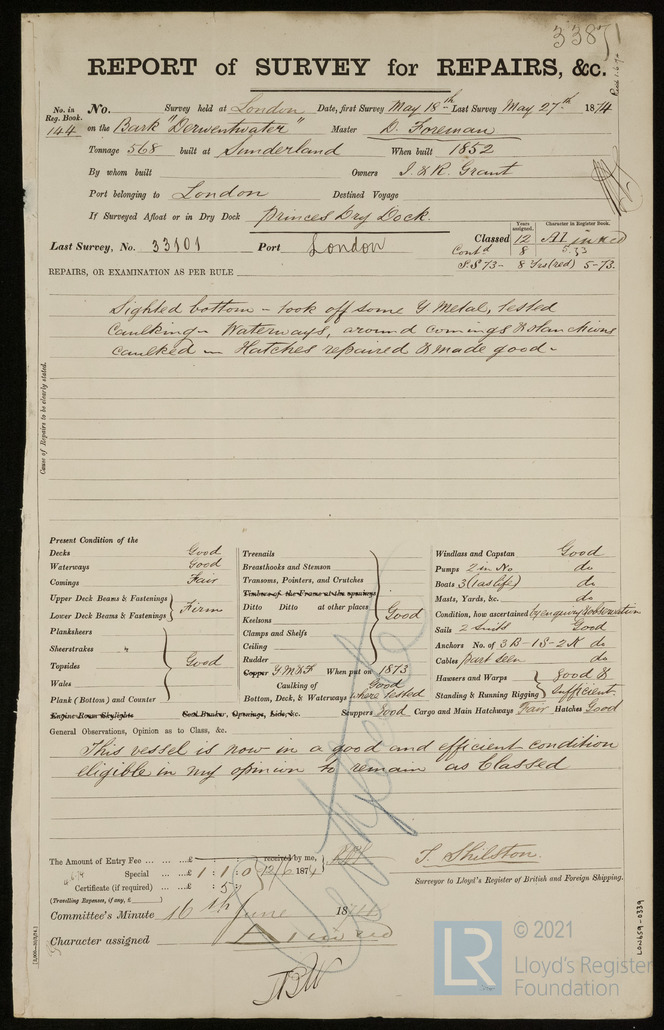 33871
REPORT of SURVEY for REPAIRS, &c.
No. in Reg. Book. 144
No. Survey held at London Date, first Survey May 18th Last Survey May 27th 1874
on the Bark "Derwentwater" Master D. Foreman
Tonnage 568 built at Sunderland When built 1852
By whom built Owners J. & R. Grant
Port belonging to London Destined Voyage
If Surveyed Afloat or in Dry Dock Princes Dry Dock.
Last Survey, No. 33101 Port London
Years assigned. Character in Register Book.
Classed 12 A1 in red
Contd 8 5.33
S.S 73 - 8 Yrs (red) 5-73.
REPAIRS, OR EXAMINATION AS PER RULE
Sighted bottom - took off some Y Metal, tested
caulking - Waterways, around comings & stanchions
caulked - Hatches repaired & made good -
Cause of Repairs to be clearly stated.
Present Condition of the
Decks Good
Waterways Good
Comings Fair
Upper Deck Beams & Fastenings
Lower Deck Beams & Fastenings Firm
Planksheers
Sheerstrakes "
Topsides Good
Wales
Plank (Bottom) and Counter
Engine Room Skylights Coal Bunker, Openings, Lids, &c.
Treenails
Breasthooks and Stemson
Transoms, Pointers, and Crutches
Timbers of the Frame at the openings
Ditto Ditto at other places Good
Keelsons
Clamps and Shelfs
Ceiling
Rudder
Copper Y M & F When put on 1873
Caulking of Good
Bottom, Deck, & Waterways where tested
Scuppers Good Cargo and Main Hatchways Fair Hatches Good
Windlass and Capstan Good
Pumps 2 in No do
Boats 3 (1 as life) do
Masts, Yards, &c. do
Condition, how ascertained by enquiry & observation
Sails 2 Suits Good
Anchors No. of 3B - 1S - 2K do
Cables Part Seen do
Hawsers and Warps Good &
Standing & Running Rigging Sufficient
General Observations, Opinion as to Class, &c.
This vessel is now in a good and efficient condition
eligible in my opinion to remain as Classed
The Amount of Entry Fee ... ... ...£ : : received by me,
Special ... ...£ 1 : 1 : 0 12/6 1874
Certificate (if required) ... : 5 :
(Travelling Expenses, if any, £ )
T. Shilston.
Surveyor to Lloyd's Register of British and Foreign Shipping.
Committee's Minute 16th June 1874
Character assigned A 1 in red
LR
© 2021
Lloyd's Register
Foundation
LON659-0339